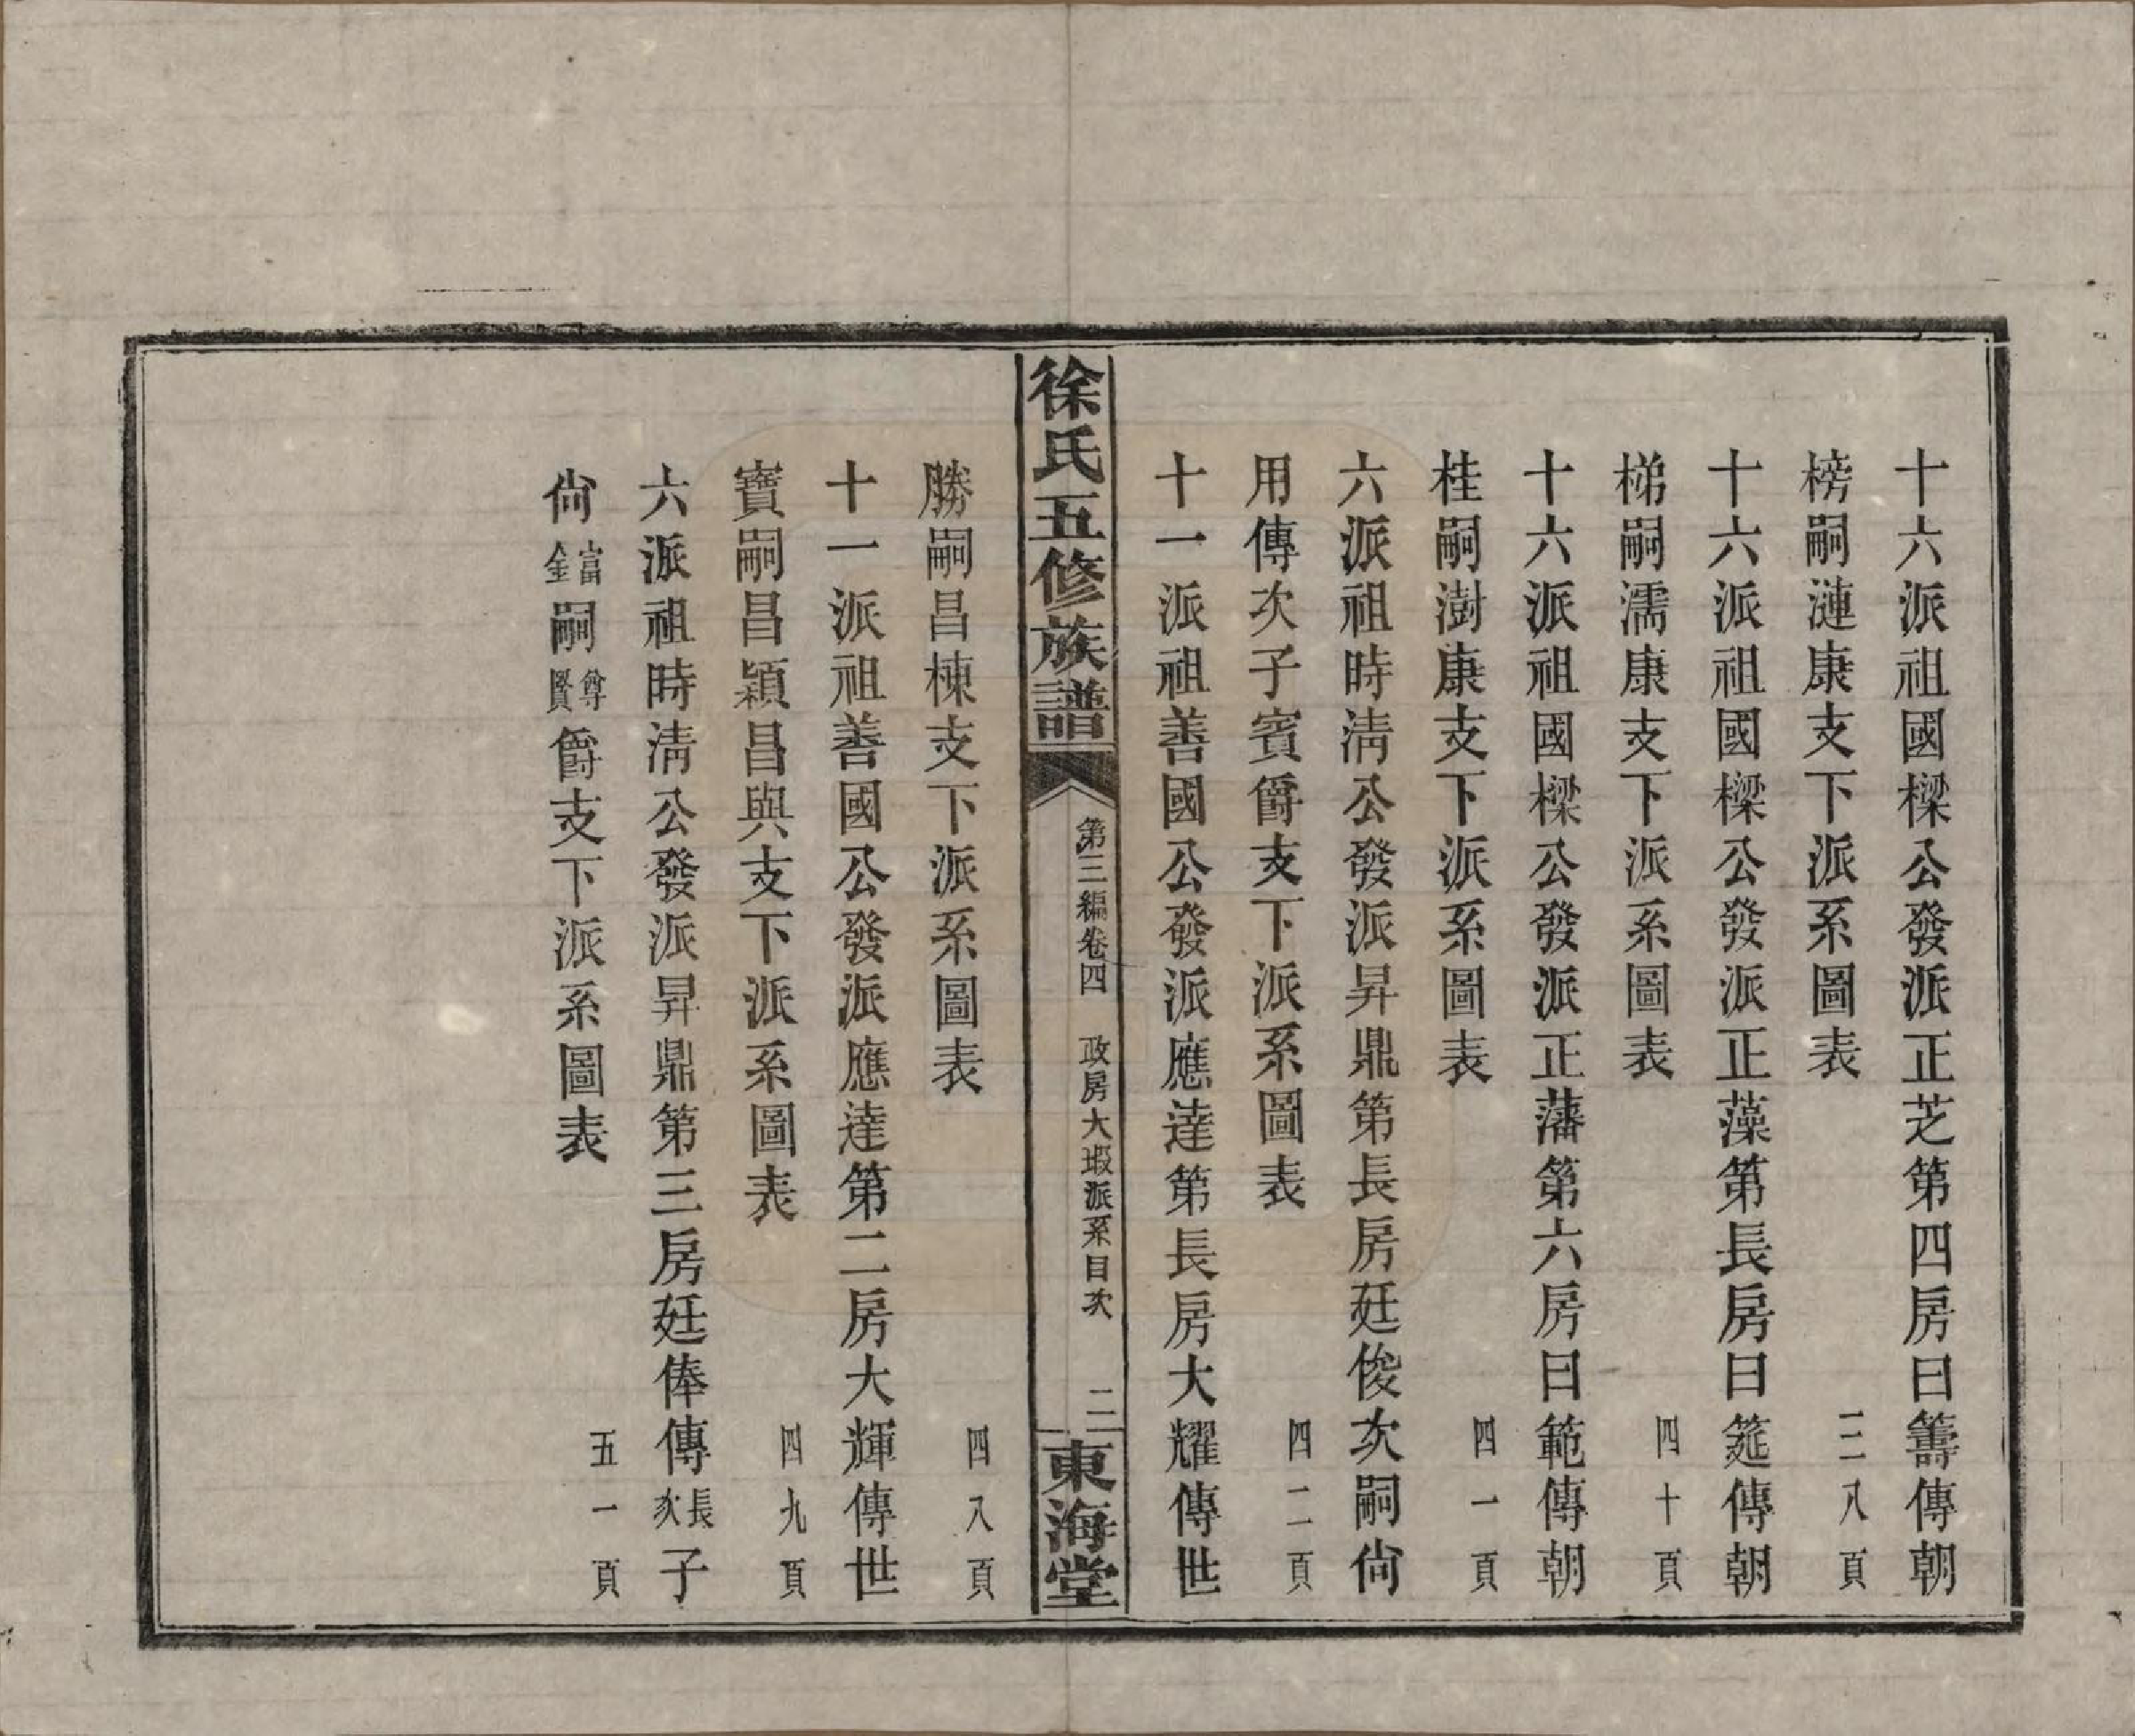 十六派祖國樑公發派正芝第四房曰籌傳朝
榜嗣漣康支下派系圖表 三八頁
十六派祖國樑公發派正藻第長房曰筵傳朝
梯嗣濡康支下派系圖表 四十頁
十六派祖國樑公發派正藩第六房曰範傳朝
桂嗣澍康支下派系圖表 四一頁
六派祖時淸公發派昇鼎第長房廷俊次嗣尙
用傳次子賓爵支下派系圖表 四二頁
十一派祖善國公發派應達第長房大耀傳世
徐氏五修族譜 第三編卷四 政房大瑕派系目次 二 東海堂
勝嗣昌棟支下派系圖表 四八頁
十一派祖善國公發派應達第二房大輝傳世
寶嗣昌穎昌與支下派系圖表 四九頁
六派祖時淸公發派昇鼎第三房廷俸傳長次子
尙富金嗣尊賢爵支下派系圖表 五一頁